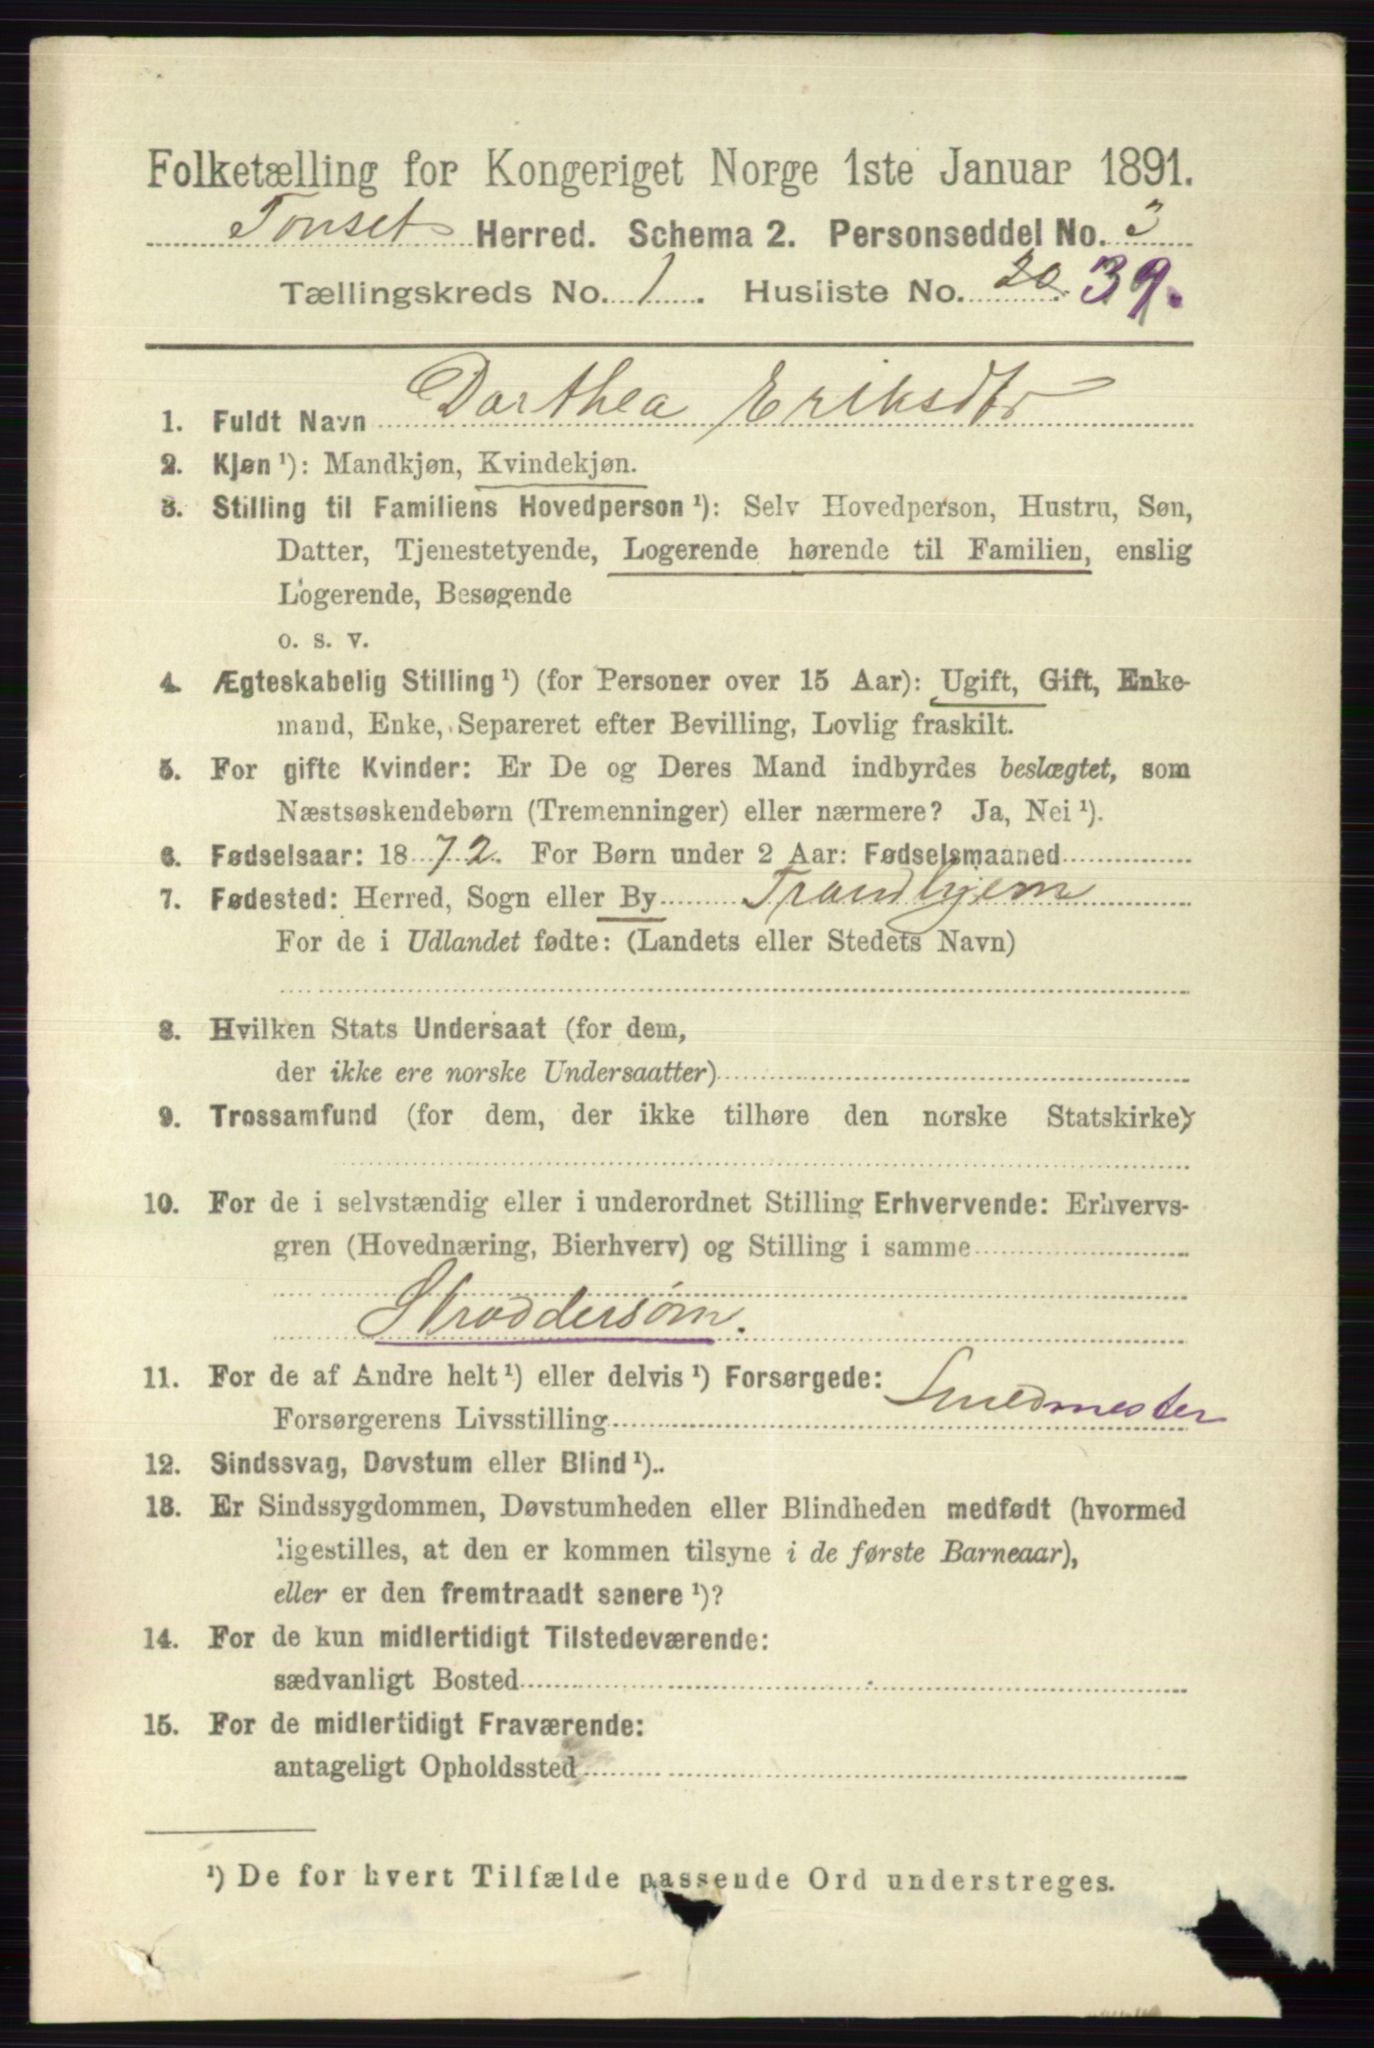 Folketælling for Kongeriget Norge 1ste Januar 1891.
Tonset Herred. Schema 2. Personseddel No. 3
Tællingskreds No. 1. Husliste No. 20. 39.
1. Fuldt Navn Dorthea Eriksdtr
2. Kjøn ¹): Mandkjøn, Kvindekjøn.
3. Stilling til Familiens Hovedperson ¹): Selv Hovedperson, Hustru, Søn,
Datter, Tjenestetyende, Logerende hørende til Familien, enslig
Logerende, Besøgende
o. s. v.
4. Ægteskabelig Stilling ¹) (for Personer over 15 Aar): Ugift, Gift, Enke-
mand, Enke, Separeret efter Bevilling, Lovlig fraskilt.
5. For gifte Kvinder: Er De og Deres Mand indbyrdes beslægtet, som
Næstsøskendebørn (Tremenninger) eller nærmere? Ja, Nei ¹).
6. Fødselsaar: 1872. For Børn under 2 Aar: Fødselsmaaned
7. Fødested: Herred, Sogn eller By Trondhjem
For de i Udlandet fødte: (Landets eller Stedets Navn)
8. Hvilken Stats Undersaat (for dem,
der ikke ere norske Undersaatter)
9. Trossamfund (for dem, der ikke tilhøre den norske Statskirke)
10. For de i selvstændig eller i underordnet Stilling Erhvervende: Erhvervs-
gren (Hovednæring, Bierhverv) og Stilling i samme
Skræddersøm.
11. For de af Andre helt ¹) eller delvis ¹) Forsørgede:
Forsørgerens Livsstilling Smedmester
12. Sindssvag, Døvstum eller Blind ¹)..
13. Er Sindssygdommen, Døvstumheden eller Blindheden medfødt (hvormed
ligestilles, at den er kommen tilsyne i de første Barneaar),
eller er den fremtraadt senere ¹)?
14. For de kun midlertidigt Tilstedeværende:
sædvanligt Bosted
15. For de midlertidigt Fraværende:
antageligt Opholdssted
¹) De for hvert Tilfælde passende Ord understreges.